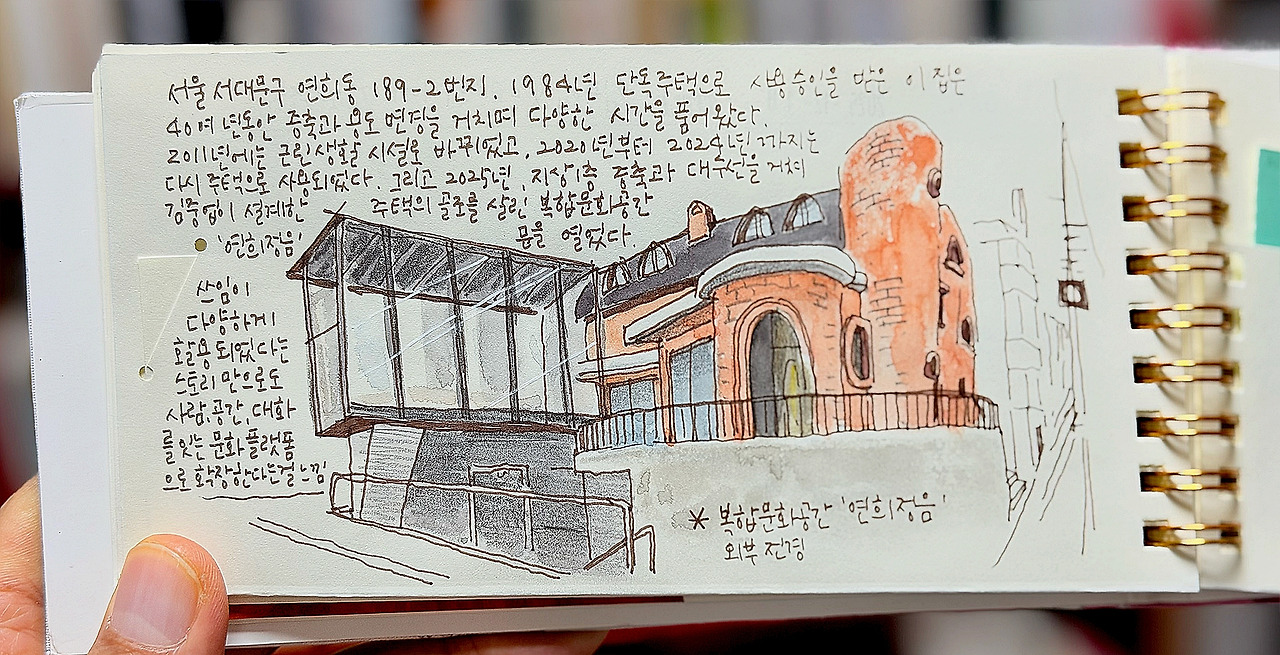 서울 서대문구 연희동 189-2번지. 1984년 단독주택으로 사용승인을 받은 이 집은
40여 년동안 증축과 용도 변경을 거치며 다양한 시간을 품어왔다.
2011년에는 근린생활 시설로 바뀌었고, 2020년부터 2024년까지는
다시 주택으로 사용되었다. 그리고 2025년, 지상1층 증축과 대수선을 거쳐
김중업이 설계한 주택의 골조를 살린 복합문화공간
'연희정음' 문을 열었다.
산임이
다양하게
활용되었다는
스토리만으로도
사람, 공간, 대화
를 잇는 문화플랫폼
으로 확장한다는걸 느낌
* 복합문화공간 '연희정음'
외부 전경